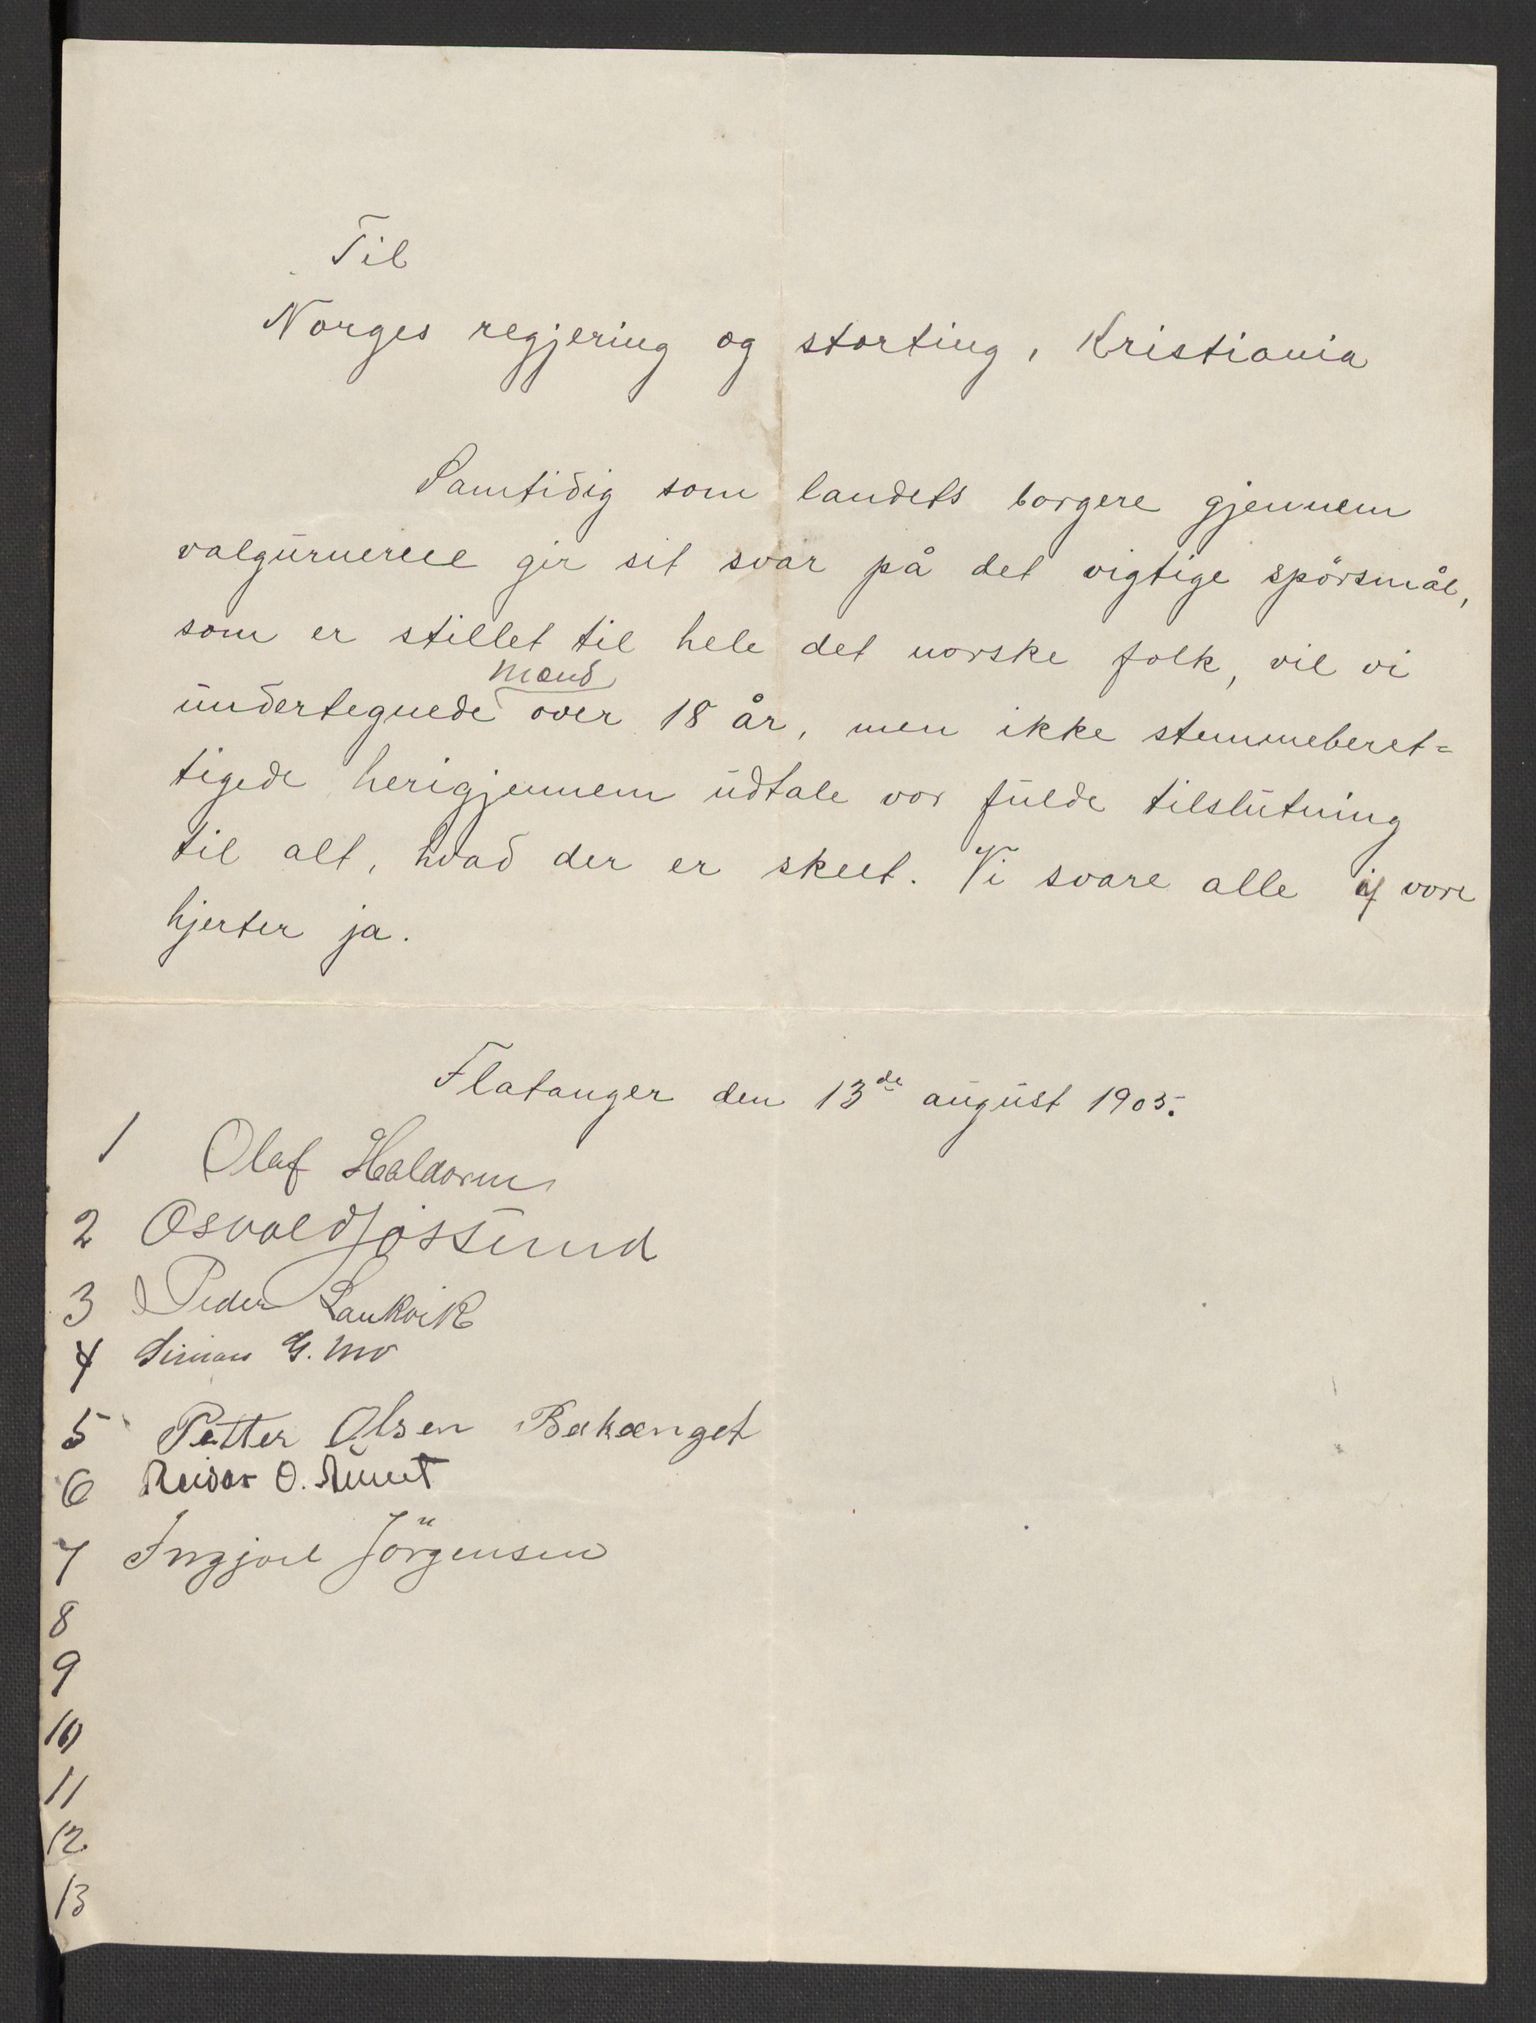 Til
Norges regjering og storting, Kristiania
Samtidig som landets borgere gjennem
valgurnerne gir sit svar på det vigtige spörsmål,
som er stillet til hele det norske folk, vil vi
mænd
undertegnede over 18 år, men ikke stemmeberet=
tigede herigjennem udtale vor fulde tilslutning
til alt, hvad der er skeet. Vi svare alle af vore
hjerter ja.
Flatanger den 13de august 1905.
1 Olaf Haldorsen
2 Osvald Jøssund
3 Peder Laukvik
4 Simon G. Mo
5 Petter Olsen Bakænget
6 Reidar O.
7 Jörgensen
8
9
10
11
12
13